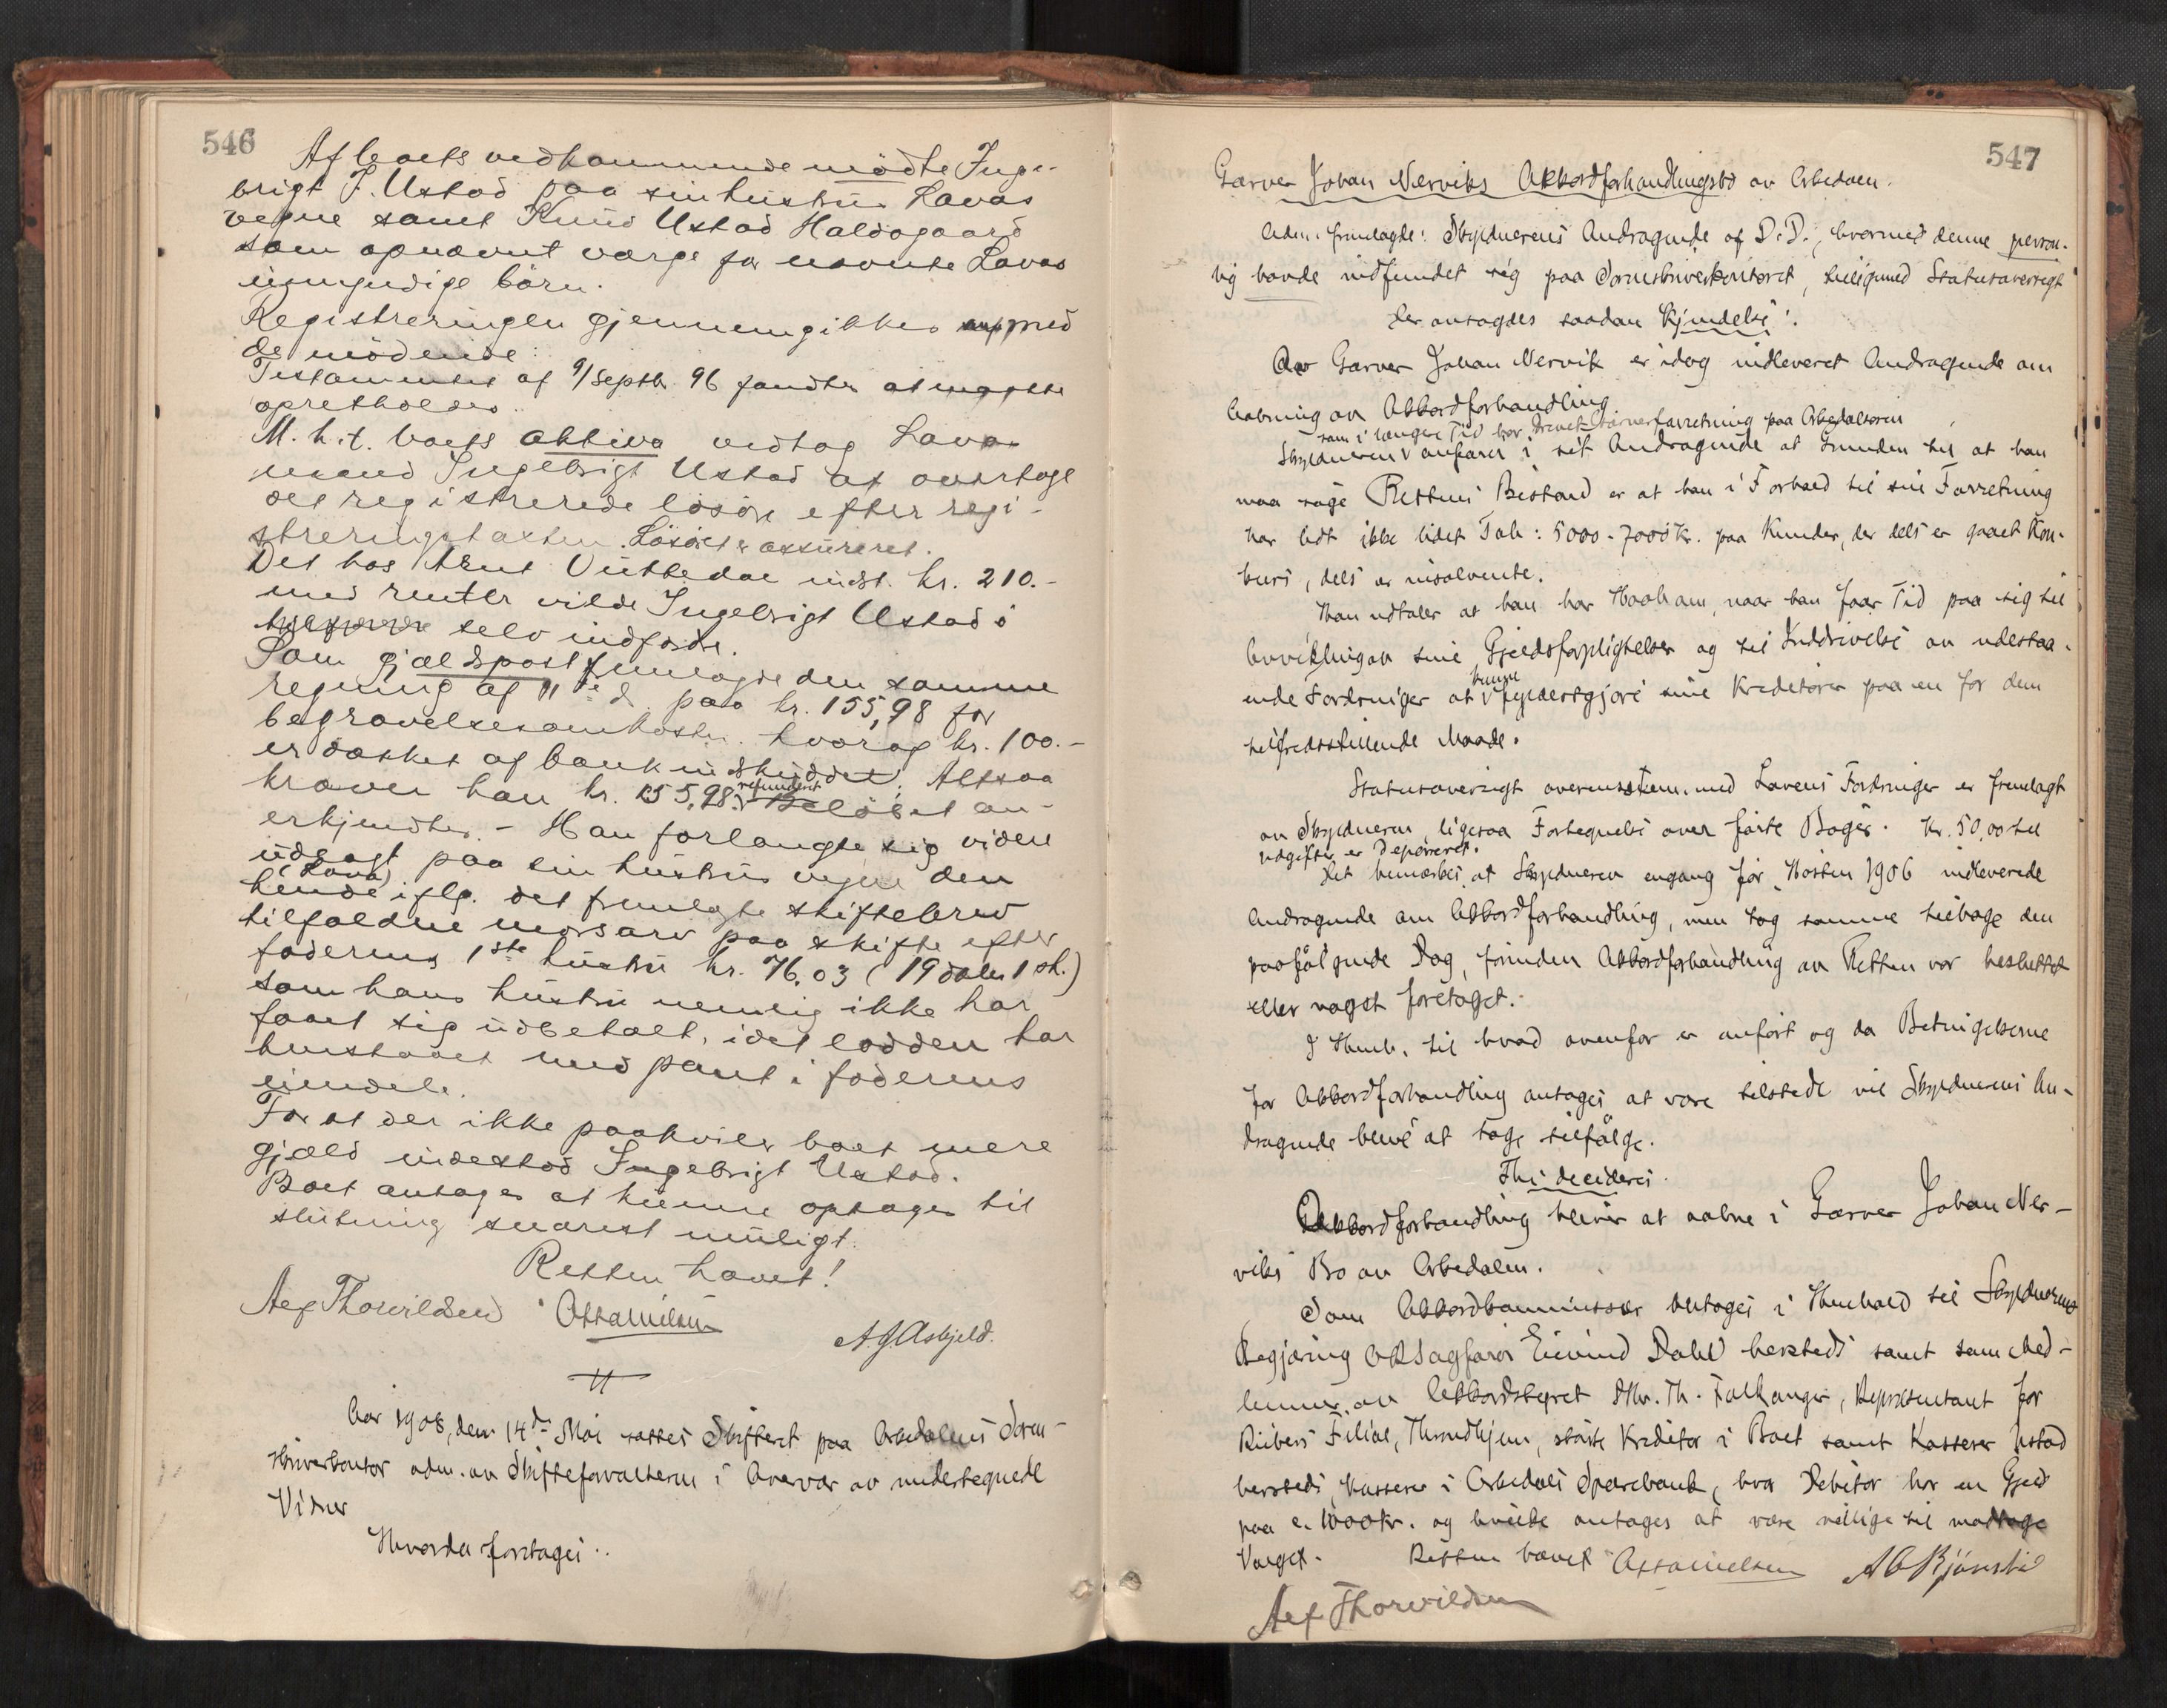 546
Af boets vedkommende mödte Inge-
brigt J. Ustad paa sin hustru Lavas
vegne samt Knud Ustad Haldogaard
som opnævnt værge for nævnte Lavas
umyndige börn.
Registreringen gjennemgikkes med
de mödende:
Testamentet af 9/Septbr. 96 fandtes at maatte
opretholdes.
M. h. t. boets aktiva vedtog Lavas
mand Ingebrigt Ustad at overtage
det registrerede lösöre efter regi-
streringstaxten. Lösöret er assureret.
Det hos Arnt indst. kr. 210.-
med renter vilde Ingebrigt Ustad
selv indfordre.
Som gjældspost fremlagde den samme
regning af 11te ds. paa kr. 155,98 for
begravelsesomkostn. hvoraf kr. 100.-
er dækket af bankindskuddet. Altsaa
kræver han kr. 55,98 refunderet Belöbet an-
erkjendtes. - Han forlangte sig videre
udlagt paa sin hustrus vegne den
(Lava)
hende iflg. det fremlagte skiftebrev
tilfaldne morsarv paa skifte efter
faderens 1ste hustru kr. 76.03 (19 daler 1 sk.)
som hans hustru nemlig ikke har
faaet sig udbetalt, idet lodden har
henstaaet med pant i faderens
eiendele.
For at der ikke paahviler boet mere
gjæld indestod Ingebrigt Ustad.
Boet antages at kunne optages til
slutning snarest muligt.
Retten hævet!
Alf Thorvildsen
A. J. Asbjeld.
Aar 1908, den 14de Mai sattes Skifteret paa Orkedalens Soren-
skriverkontor adm. av Skifteforvalteren i Overvær av undertegnede
Vidner
Hvorda foretages..
547
Garver Johan Nerviks Akkordforhandlingsbo av Orkedalen.
Adm. fremlagde: Skyldnerens Andragende af D. D., hvormed denne person-
lig havde indfundet sig paa Sorenskriverkontoret, tilligemed Statusoversigt
Der avsagdes saadan Kjendelse:
Av Garver Johan Nervik er idag indleveret Andragende om
Aabning av Akkordforhandling
som i længere Tid har drevet Garverforretning paa Orkedalsøren
Skyldneren anfører i sit Andragende at Grunden til at han
maa søge Rettens Bistand er at han i Forhold til sin Forretning
har lidt ikke lidet Tab: 5000 - 7000 Kr. paa Kunder, der dels er gaaet Kon-
kurs, dels er insolvente.
Han udtaler at han har Haab om, naar han faar Tid paa sig til
Avvikling av sine Gjældsforpligtelser og til Inddrivelse av udestaa-
kunne
ende Fordringer at fyldestgjøre sine Kreditorer paa en for dem
tilfredsstillende Maade.
Statusoversigt overensstem. med Lovens Fordringer er fremlagt
av Skyldneren, ligesaa Fortegnelse over førte Bøger. Kr. 50,00 til
udgifter er deponeret.
Det bemærkes at Skyldneren engang før, Høsten 1906 indleverede
Andragende om Akkordforhandling, men tog samme tilbage den
paafølgende Dag, forinden Akkordforhandling av Retten var besluttet
eller noget foretaget.
I Henh. til hvad ovenfor er anført og da Betingelserne
for Akkordforhandling antages at være tilstede vil Skyldnerens An-
dragende blive at tage tilfølge.
Thi decideres:
Akkordforhandling bliver at aabne i Garver Johan Ner-
viks Bo av Orkedalen.
Som Akkordkommissær antages i Henhold til Skyldnerens
Begjæring ORSagfører Eivind Dahl hersteds samt som Med-
lemmer av Akkordstyret Hr. Th. Falkanger, Repræsentant for
Riebers Filial, Throndhjem, største Kreditor i Boet samt Kasserer Ustad
hersteds, Kasserer i Orkedals Sparebank, hvor Debitor har en Gjæld
paa c. 1000 Kr. og hvilke antages at være villige til modtage
Valget. Retten hævet
Alf Thorvildsen